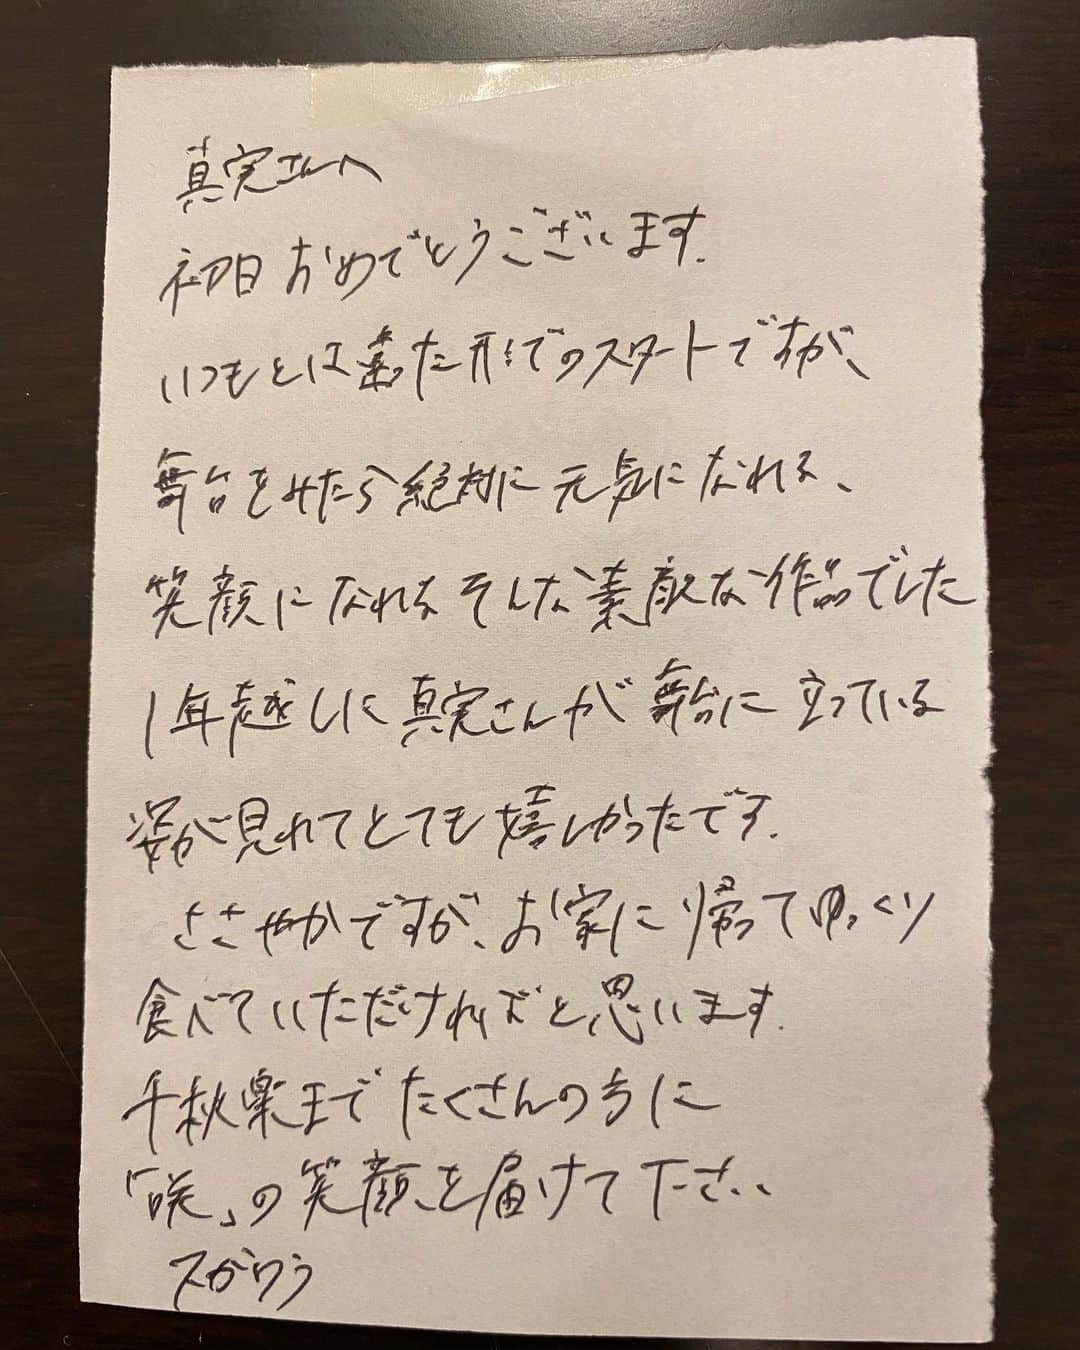 真実さんへ
初日おめでとうございます.
いつもとは違った形でのスタートですが、
舞台をみたら絶対に元気になれる、
笑顔になれるそんな素敵な作品でした
1年越しに真実さんが舞台に立っている
姿が見れてとても嬉しかったです.
ささやかですが、お家に帰ってゆっくり
食べていただければと思います.
千秋楽までたくさんの方に
「咲」の笑顔を届けて下さい
スガワラ